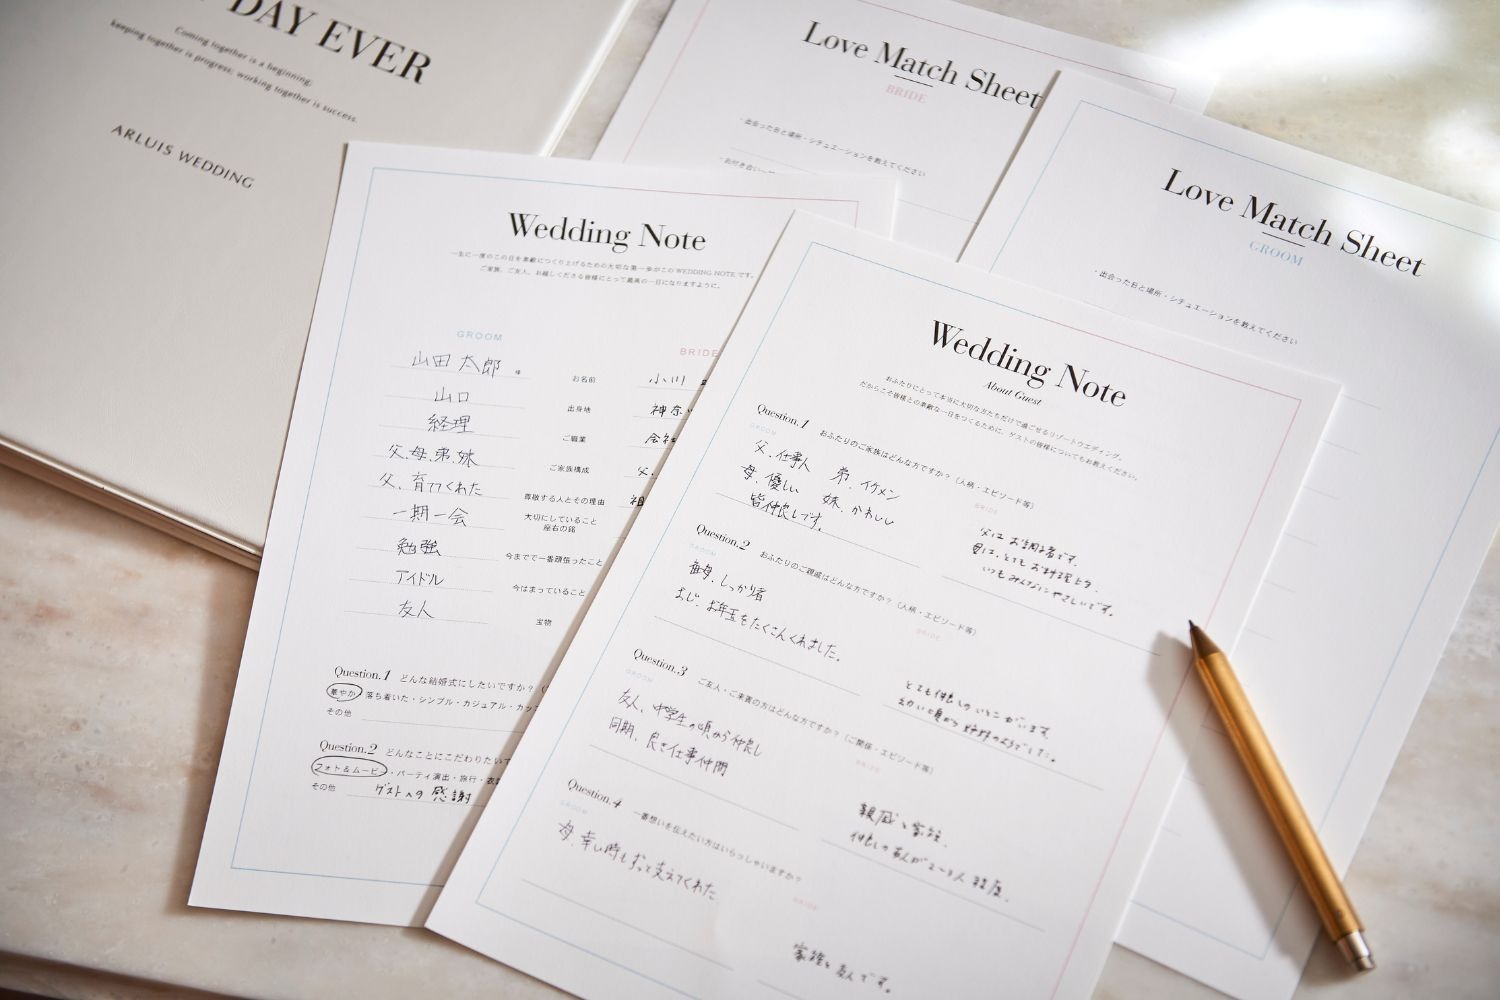 DAY EVER
Coming together is a beginning;
keeping together is progress; working together is success.
ARLUIS WEDDING
Love Match Sheet
BRIDE
・出会った日と場所・シチュエーションを教えてください
・お付き合い
Love Match Sheet
GROOM
・出会った日と場所・シチュエーションを教えてください
Wedding Note
一生に一度のこの日を素敵につくり上げるための大切な第一歩がこのWEDDING NOTEです。
ご家族、ご友人、お越しくださる皆様にとって最高の一日になりますように。
GROOM
BRIDE
山田 太郎 様 お名前 小川
山口 出身地 神奈
経理 ご職業 会社
父.母.弟.妹 ご家族構成 父.
父.育ててくれた 尊敬する人とその理由 祖
一期一会 大切にしていること
座右の銘
勉強 今までで一番頑張ったこと
アイドル 今はまっていること
友人 宝物
Question.1 どんな結婚式にしたいですか？
華やか・落ち着いた・シンプル・カジュアル・カッ
その他
Question.2 どんなことにこだわりたい
フォト&ムービー・パーティ演出・旅行・衣
その他 ゲストへの感謝
Wedding Note
About Guest
おふたりにとって本当に大切な方たちだけで過ごせるリゾートウエディング。
だからこそ皆様との素敵な一日をつくるために、ゲストの皆様についてもお教えください。
Question.1 おふたりのご家族はどんな方ですか？（人柄・エピソード等）
GROOM
父.仕事人 弟.イケメン
母.優しい 妹.かわいい
皆仲良しです。
BRIDE
父は お調子者です。
母は、とても お料理上手.
いつも みんなにやさしいです。
Question.2 おふたりのご親戚はどんな方ですか？（人柄・エピソード等）
GROOM
祖母.しっかり者
おじ.お年玉をたくさんくれました。
BRIDE
とても仲良しのいとこがいます。
Question.3 ご友人・ご来賓の方はどんな方ですか？（ご関係・エピソード等）
GROOM
友人、中学生の頃から仲良し
同期、良き仕事仲間
BRIDE
親戚、家族、
仲良しの友人が2〜3人程度。
Question.4 一番想いを伝えたい方はいらっしゃいますか？
GROOM
母.辛い時もずっと支えてくれた
BRIDE
家族と友人です。